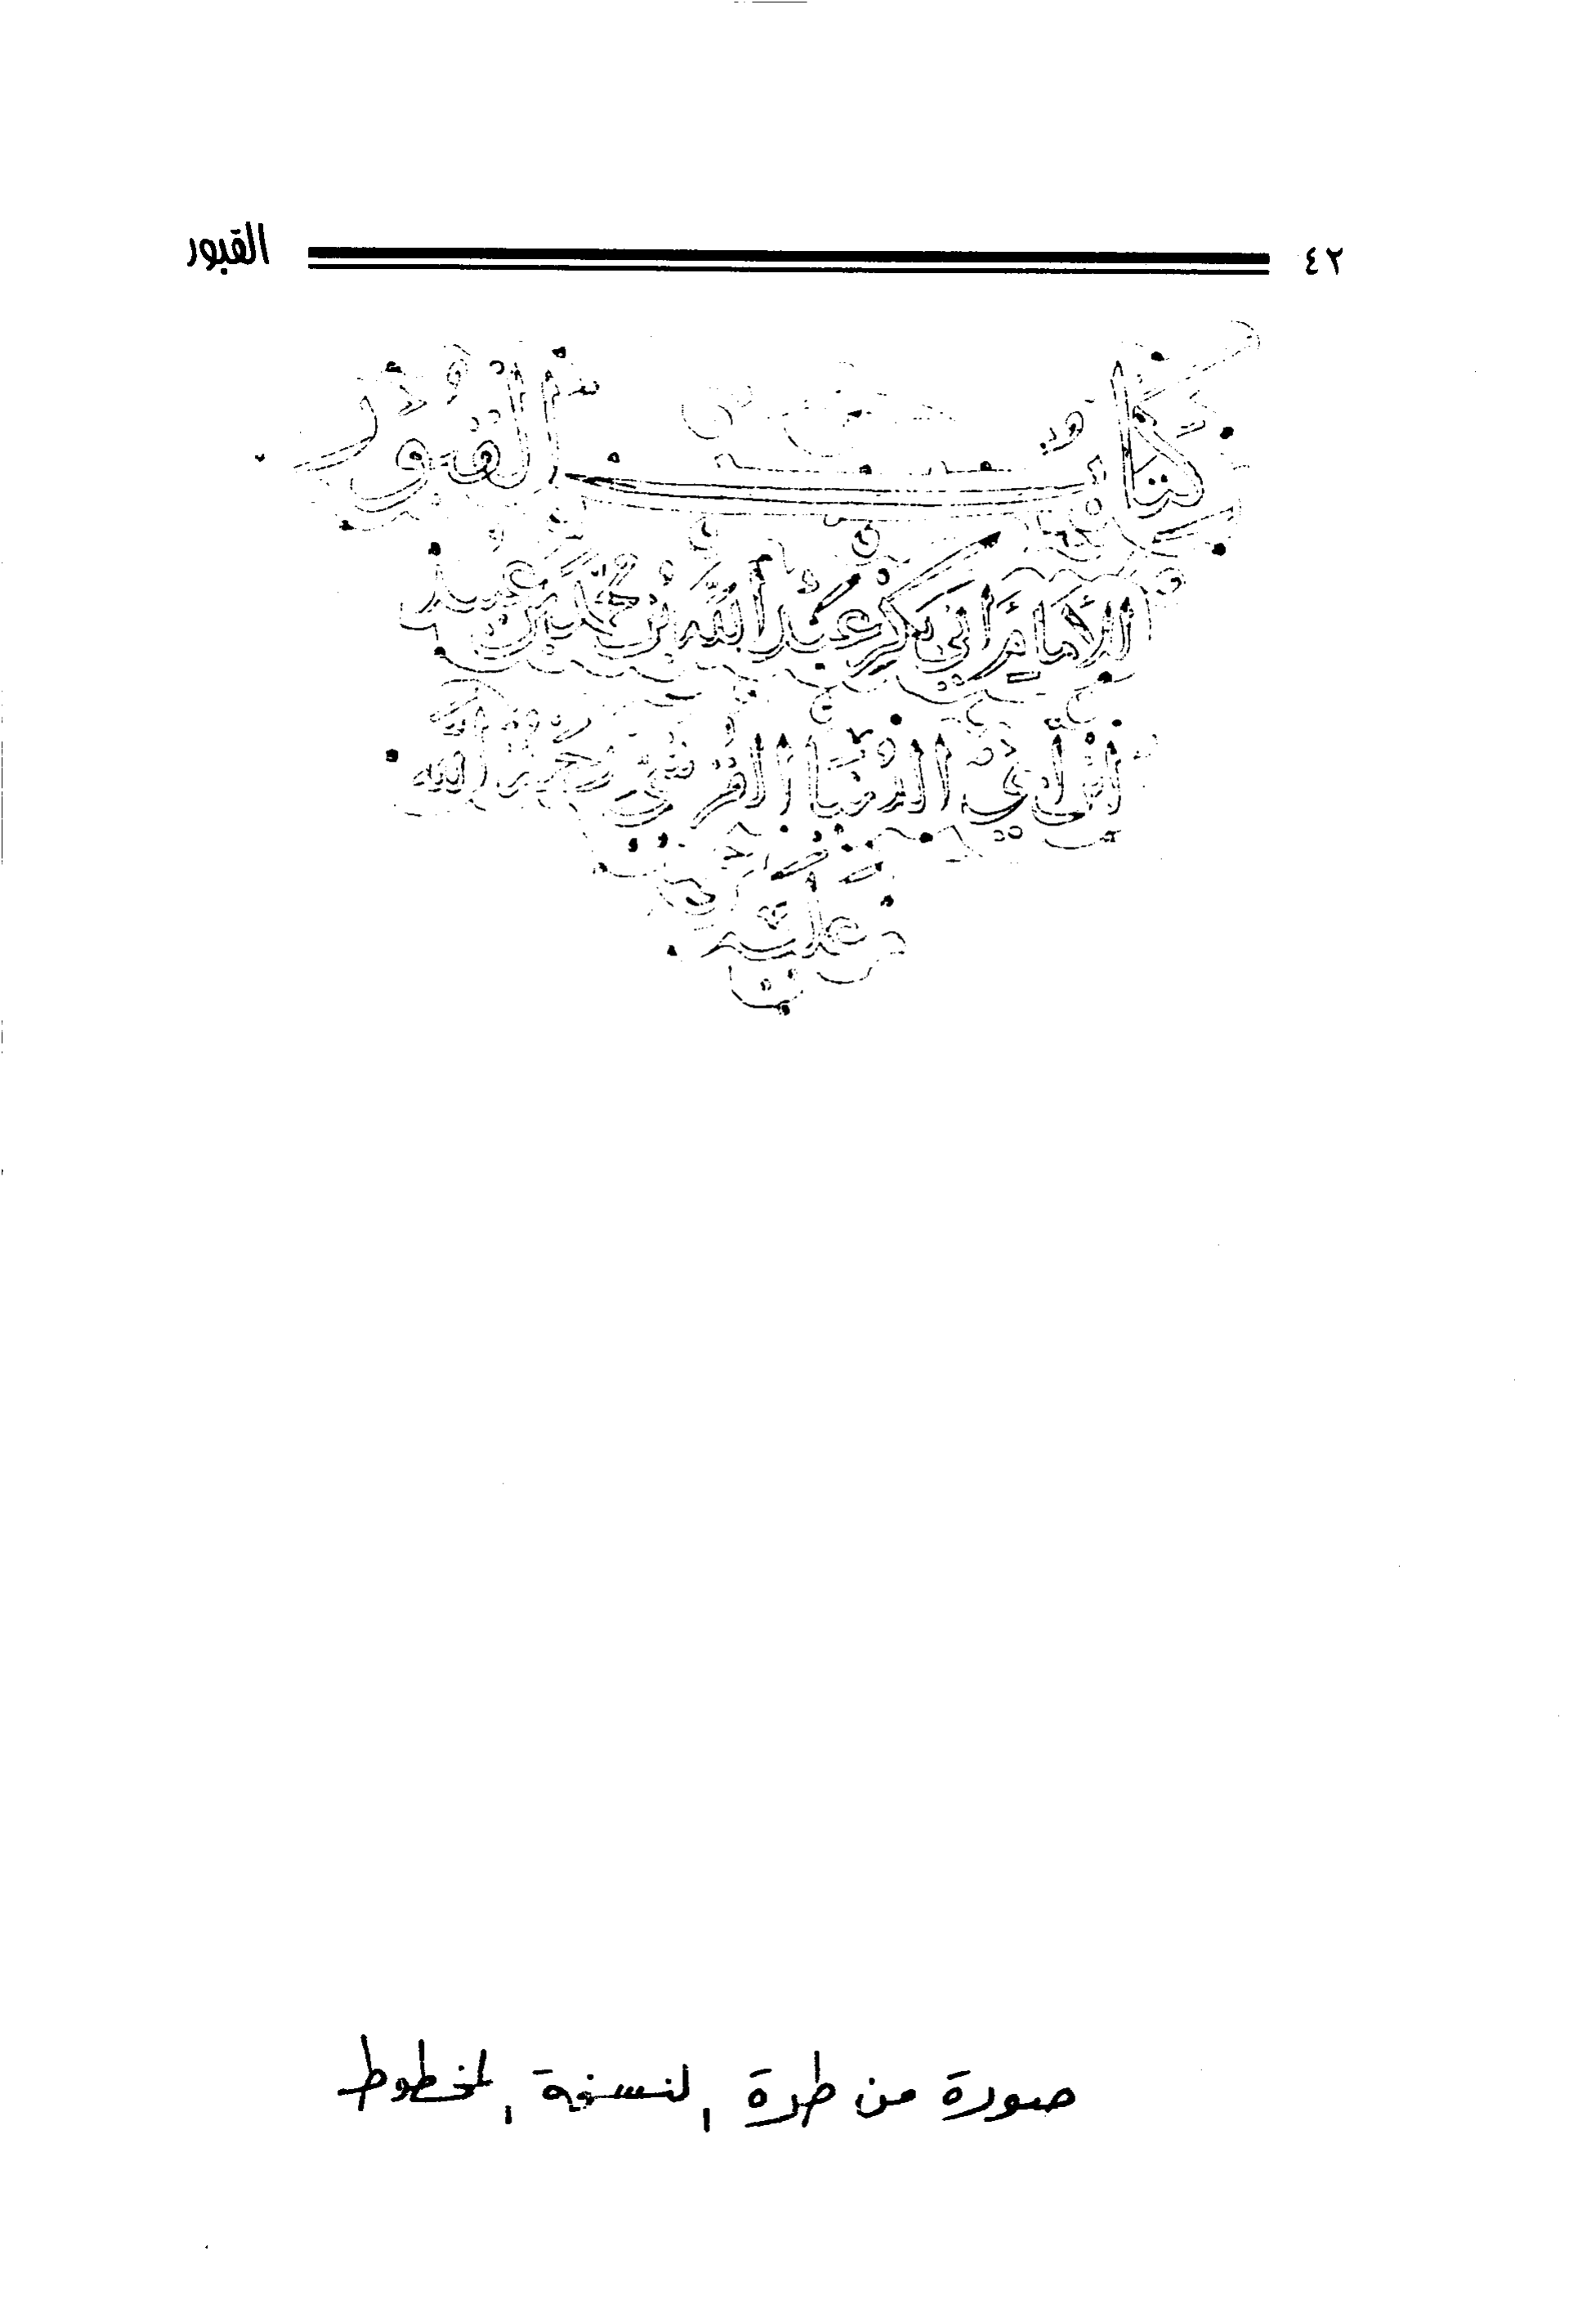 ٤٢ القبور
كتاب القبور
الإمام أبي بكر عبد الله بن محمد بن عبيد
ابن أبي الدنيا القرشي رحمة الله
عليه
صورة من طرة النسخة المخطوط